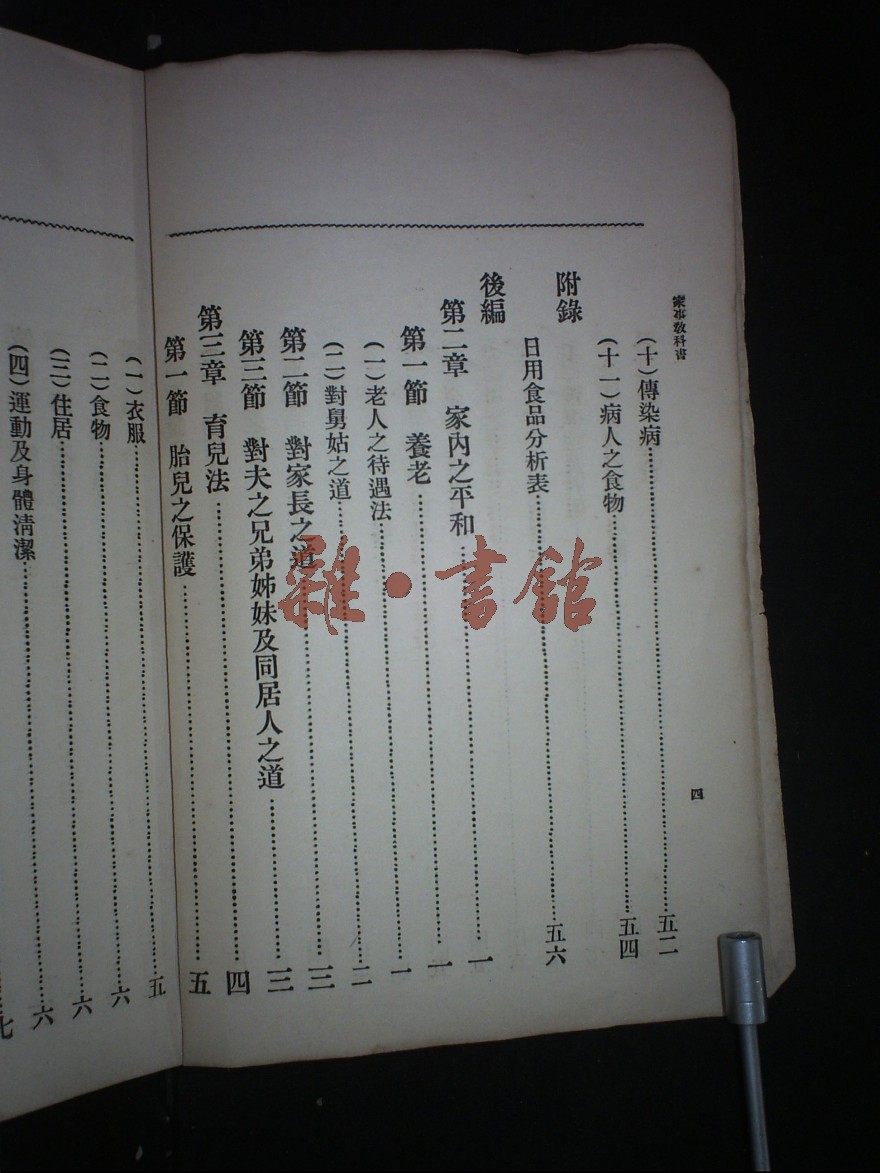 家事教科書 四
(十)傳染病…………五二
(十一)病人之食物…………五四
附錄
日用食品分析表…………五六
後編
第二章 家內之平和…………一
第一節 養老…………一
(一)老人之待遇法…………一
(二)對舅姑之道…………二
第二節 對家長之道…………三
第三節 對夫之兄弟姊妹及同居人之道…………三
第三章 育兒法…………四
第一節 胎兒之保護…………五
(一)衣服…………五
(二)食物…………六
(三)住居…………六
(四)運動及身體清潔…………六
七
雜·書館